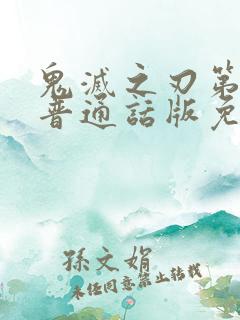 鬼滅之刃第
普通話版免
孫文娟
未经同意禁止转载